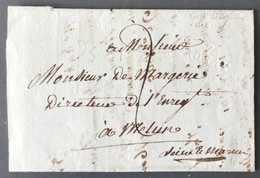 a Monsieur
Monsieur de Margerie
Directeur de l'Enreg
à Melun
Seine & Marne